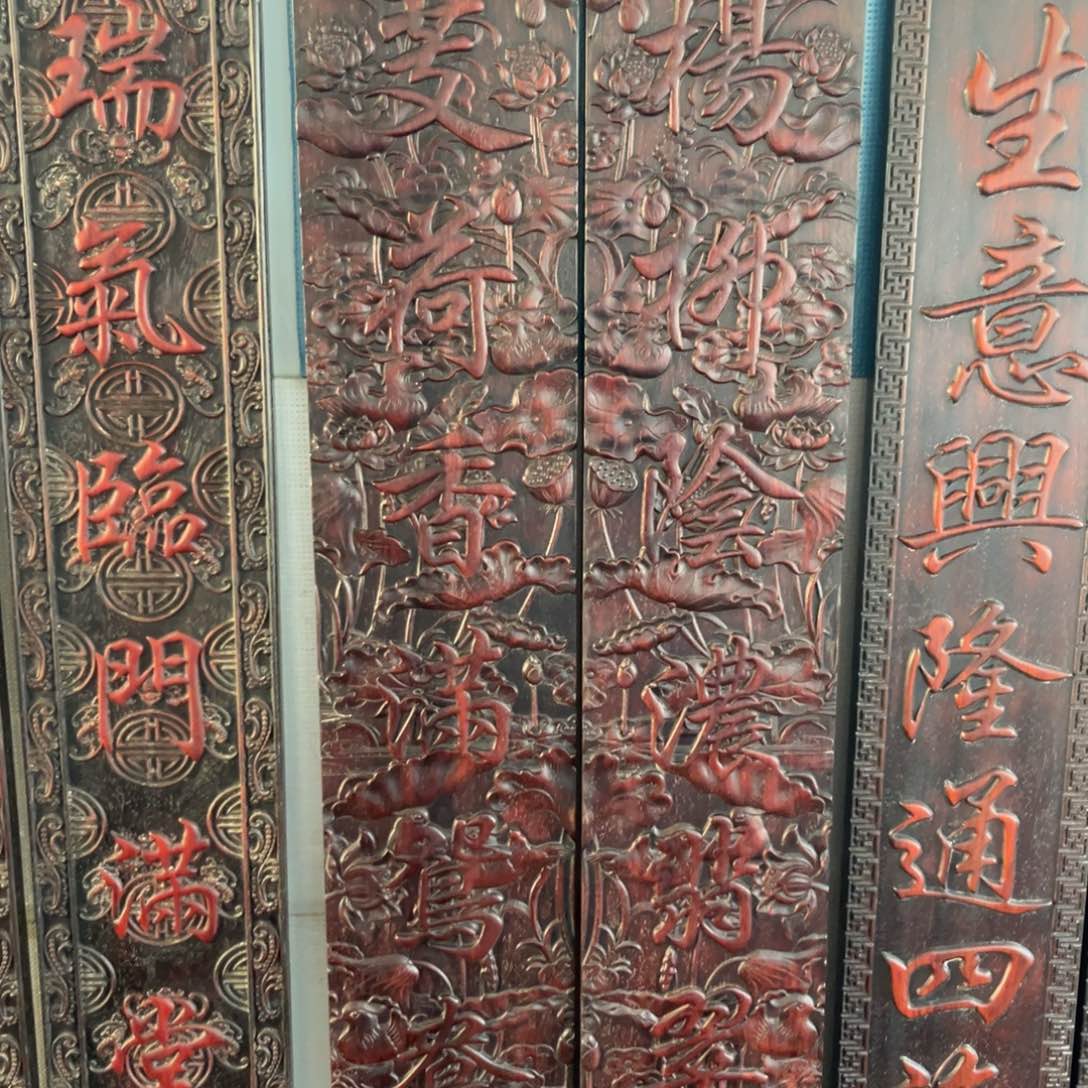 生意興隆通四海
楊柳陰濃翡翠
芰荷香滿鴛鴦
瑞氣臨門滿堂